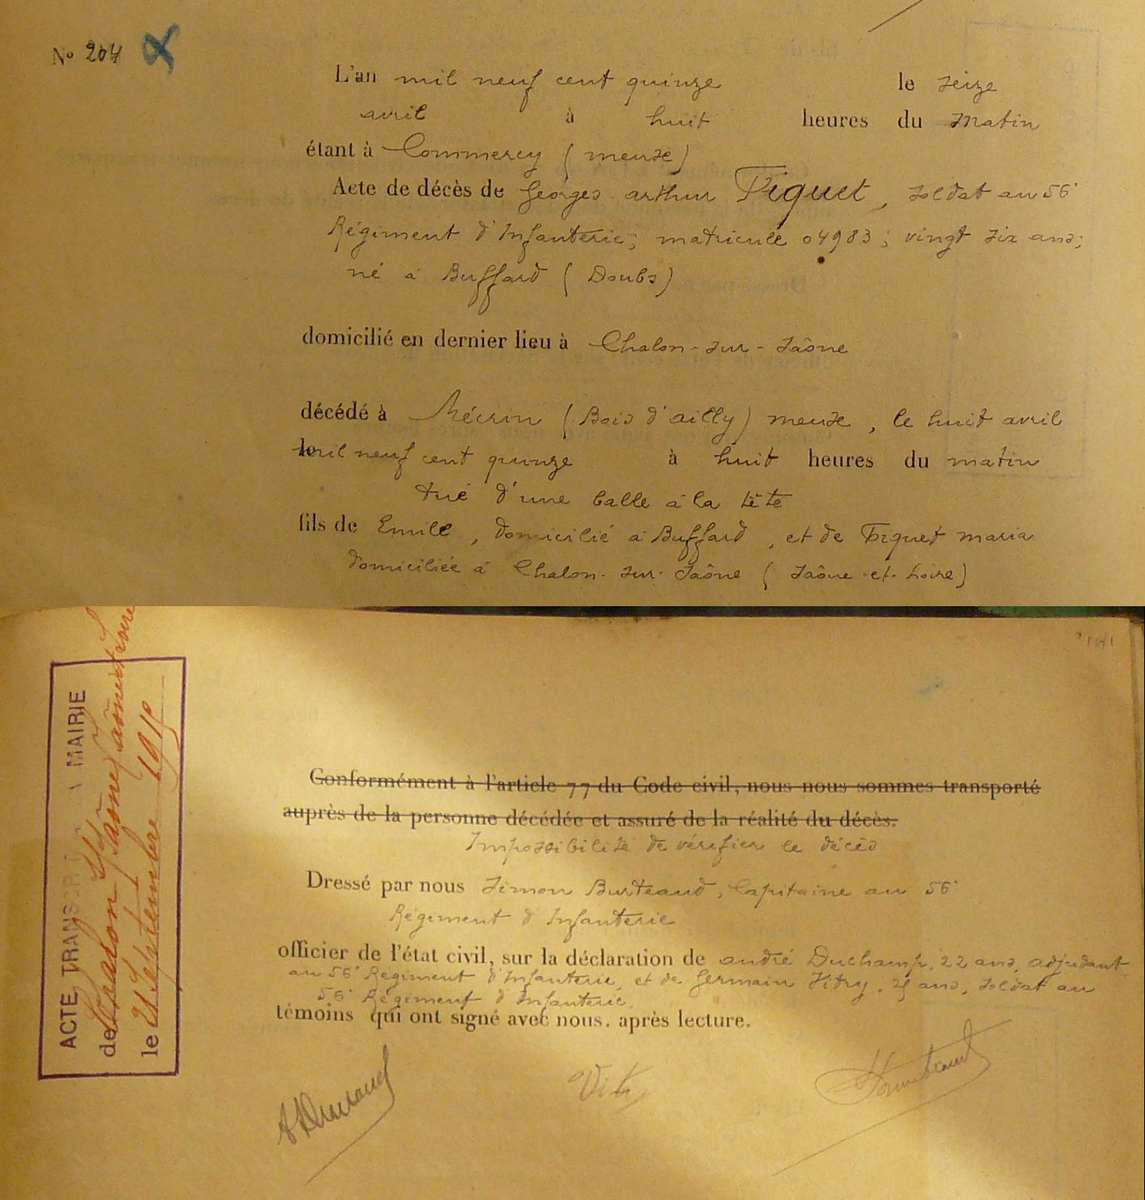 No 204
L'an mil neuf cent quinze le seize
avril à huit heures du matin
étant à Commercy (meuse)
Acte de décès de Georges arthur Piquet, soldat au 56e
Régiment d'Infanterie; matricule 04983; vingt six ans;
né à Buffard (Doubs)
domicilié en dernier lieu à Chalon-sur-Saône
décédé à Mécrin (Bois d'ailly) meuse, le huit avril
mil neuf cent quinze à huit heures du matin
tué d'une balle à la tête
fils de Emile, domicilié à Buffard, et de Piquet maria
domiciliée à Chalon-sur-Saône (Saône-et-Loire)
ACTE TRANSR MAIRIE
de Chalon S/ Saône, Saône et Loire
le 21 Septembre 1915
Conformément à l'article 77 du Code civil, nous nous sommes transporté
auprès de la personne décédée et assuré de la réalité du décès.
Impossibilité de vérifier le décès
Dressé par nous Simon Burteaud, Capitaine au 56e
Régiment d'Infanterie
officier de l'état civil, sur la déclaration de andré Duchamp, 22 ans, adjudant
au 56e Régiment d'Infanterie, et de Germain Vitry, ans, soldat au
56e Régiment d'Infanterie,
témoins qui ont signé avec nous, après lecture.